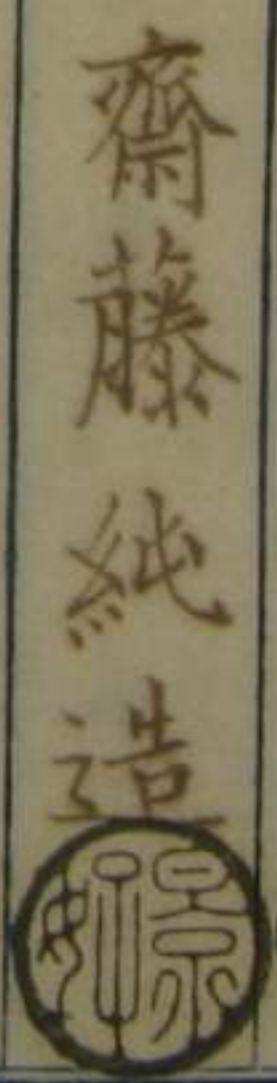 齋藤純造